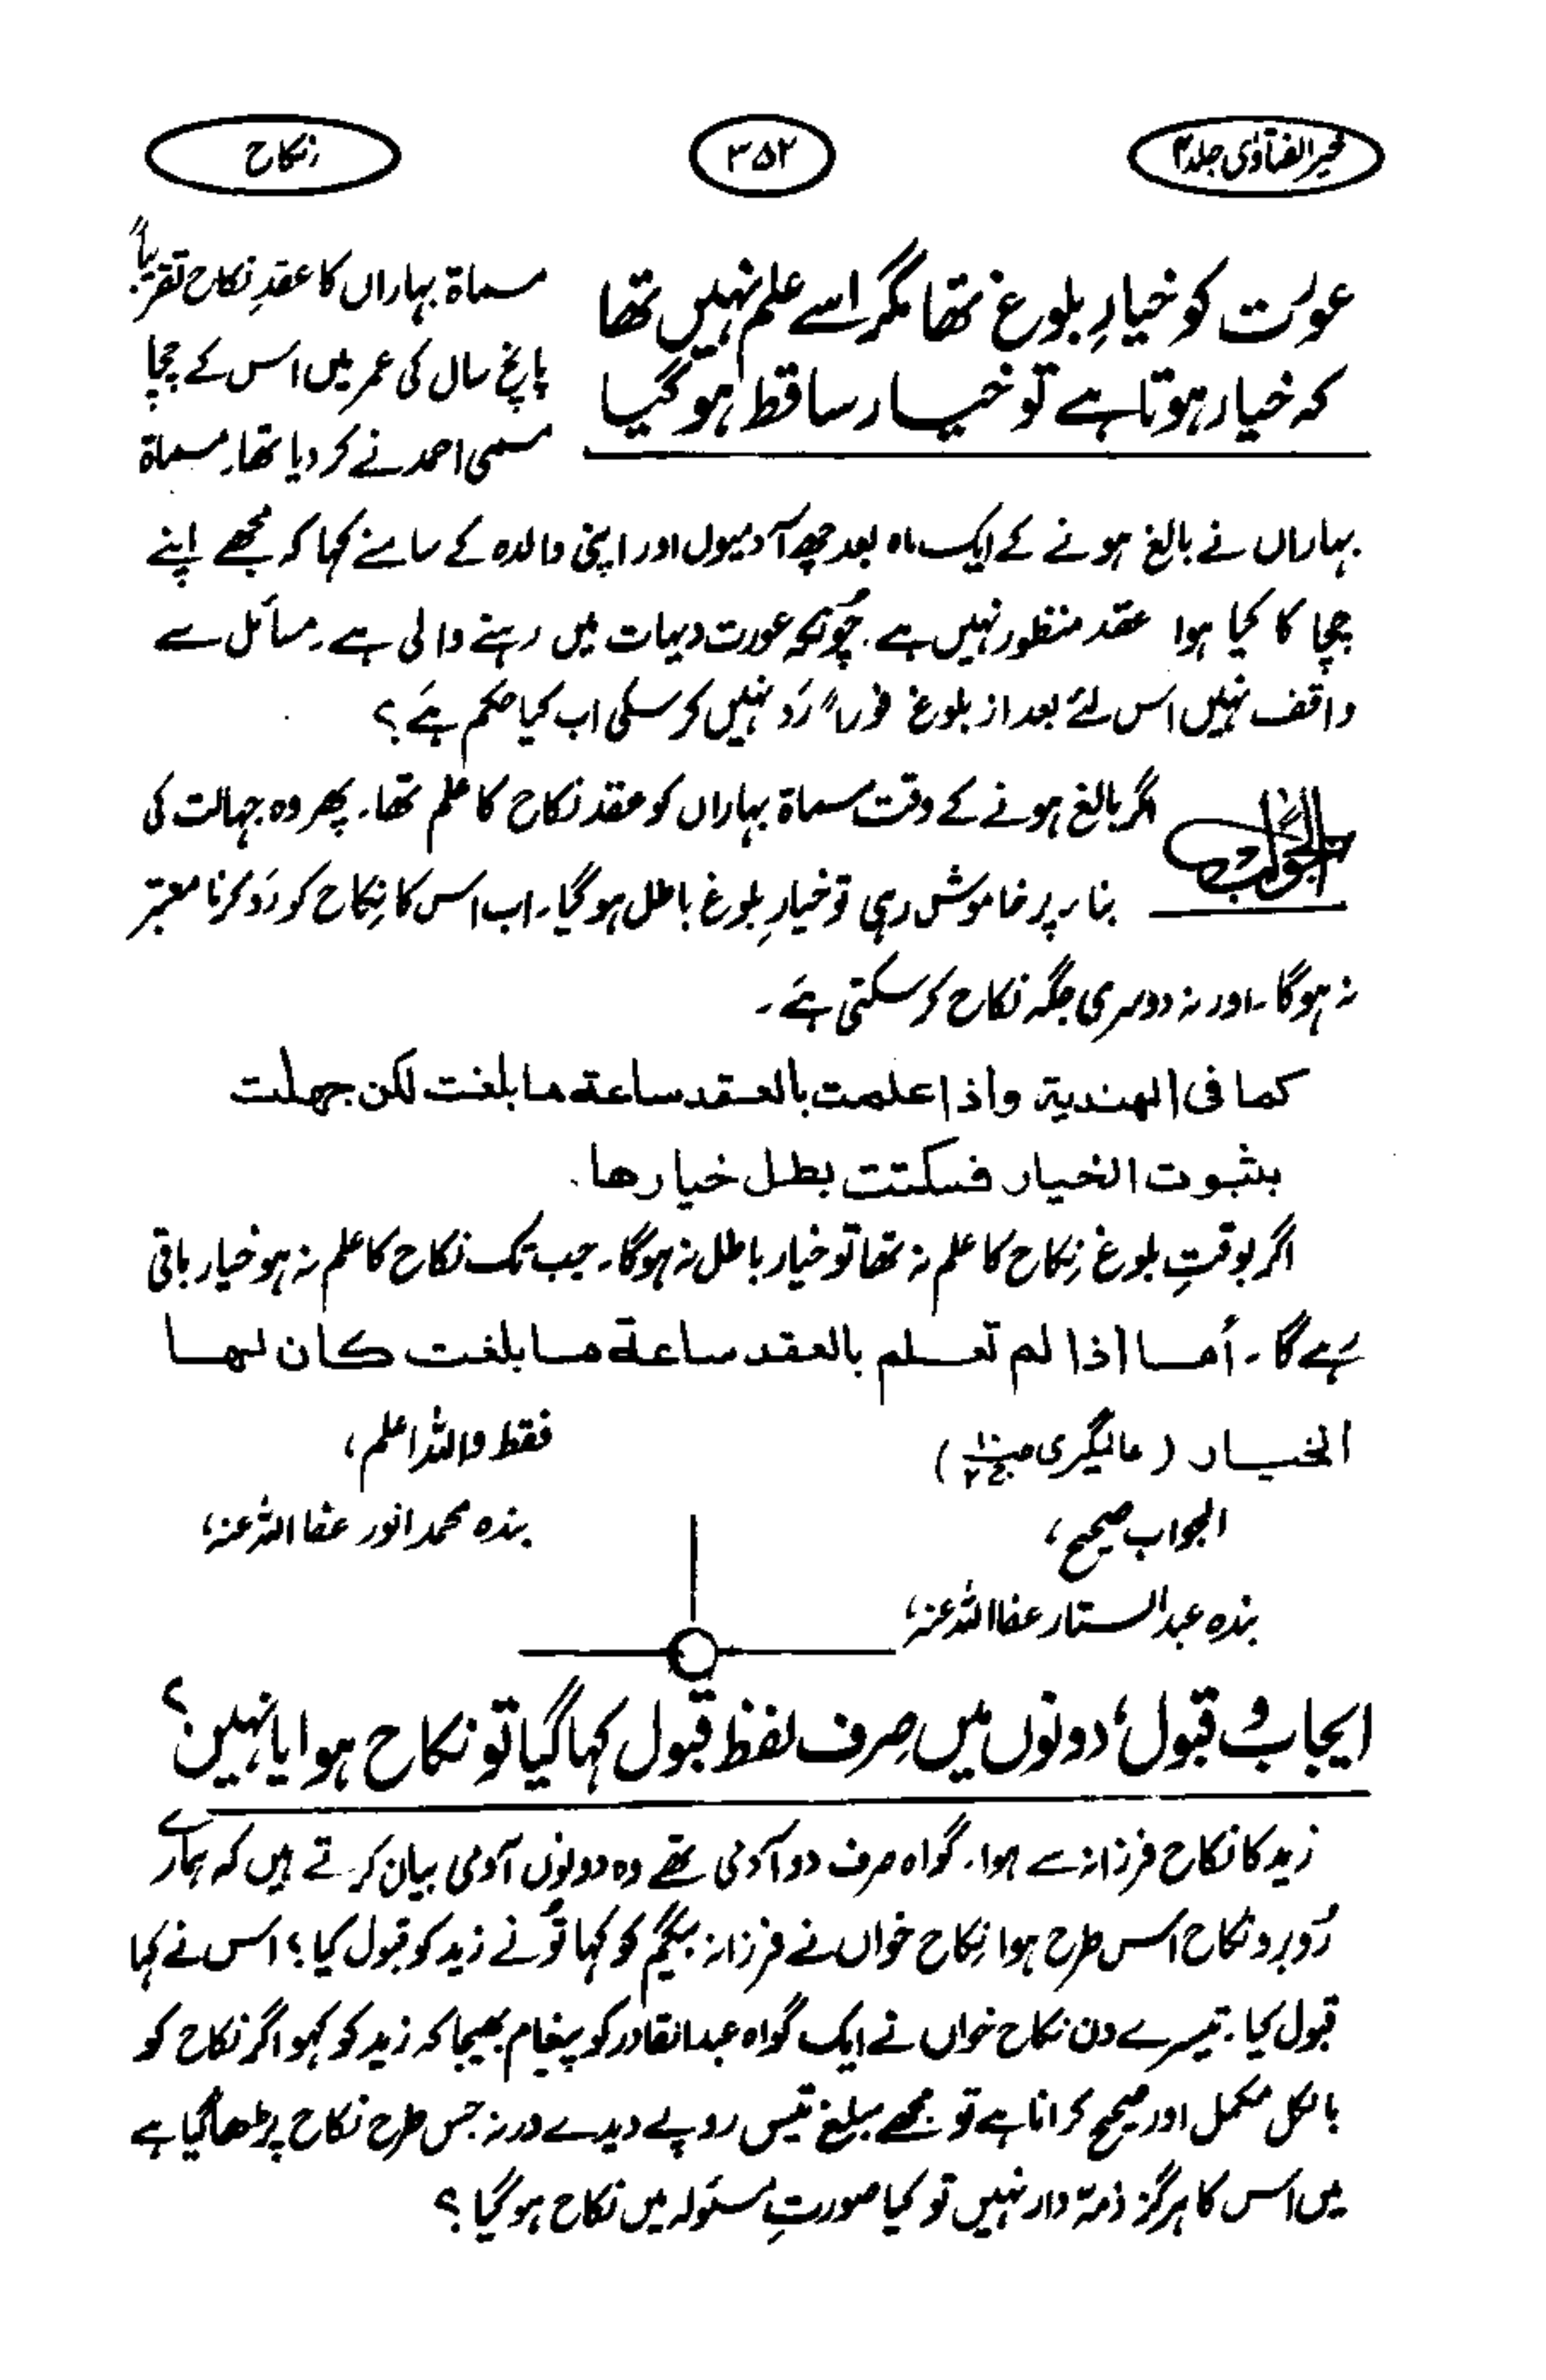 خیر الفتاویٰ جلد ۴
۳۵۲
نکاح
عورت کو خیارِ بلوغ تھا مگر اسے علم نہیں تھا
کہ خیار ہوتا ہے تو خیار ساقط ہو گیا
مسماۃ بہاراں کا عقدِ نکاح تقریباً
پانچ سال کی عمر میں اس کے چچا
مسمی احمد نے کر دیا تھا۔ مسماۃ
بہاراں نے بالغ ہونے کے ایک ماہ بعد چھ آدمیوں اور اپنی والدہ کے سامنے کہا کہ مجھے اپنے
چچا کا کیا ہوا عقد منظور نہیں ہے۔ چونکہ عورت دیہات میں رہنے والی ہے۔ مسائل سے
واقف نہیں اس لئے بعد از بلوغ فوراً رَد نہیں کر سکی اب کیا حکم ہے؟
الجواب
اگر بالغ ہونے کے وقت مسماۃ بہاراں کو عقد نکاح کا علم تھا۔ پھر وہ جہالت کی
بناء پر خاموش رہی تو خیارِ بلوغ باطل ہو گیا۔ اب اس کا نِکاح کو رَد کرنا معتبر
نہ ہوگا۔ اور نہ دوسری جگہ نکاح کر سکتی ہے۔
كما فى الهندية واذا علمت بالعقد ساعة ما بلغت لكن جهلت
بثبوت الخيار فسكتت بطل خيارها۔
اگر بوقتِ بلوغ نِکاح کا علم نہ تھا تو خیار باطل نہ ہوگا۔ جب تک نکاح کا علم نہ ہو خیار باقی
رہے گا۔ أما اذا لم تعلم بالعقد ساعة ما بلغت كان لها
الخيار (عالمگیری
فقط واللہ اعلم،
الجواب صحیح،
بندہ محمد انور عفا اللہ عنہ،
بندہ عبد الستار عفا اللہ عنہ،
ایجاب و قبول، دونوں میں صِرف لفظ قبول کہا گیا تو نکاح ہوا یا نہیں؟
زید کا نکاح فرزانہ سے ہوا۔ گواہ صرف دو آدمی تھے وہ دونوں آدمی بیان کرتے ہیں کہ ہمارے
رُوبرو نکاح اس طرح ہوا نِکاح خواں نے فرزانہ بیگم کو کہا تُو نے زید کو قبول کیا؟ اس نے کہا
قبول کیا۔ تیسرے دن نکاح خواں نے ایک گواہ عبد القادر کو پیغام بھیجا کہ زید کو کہو اگر نکاح کو
بالکل مکمل اور صحیح کرانا ہے تو مجھے مبلغ تیس روپے دیدے ورنہ جس طرح نکاح پڑھا گیا ہے
میں اس کا ہرگز ذمہ دار نہیں تو کیا صورتِ مسئولہ میں نکاح ہو گیا؟